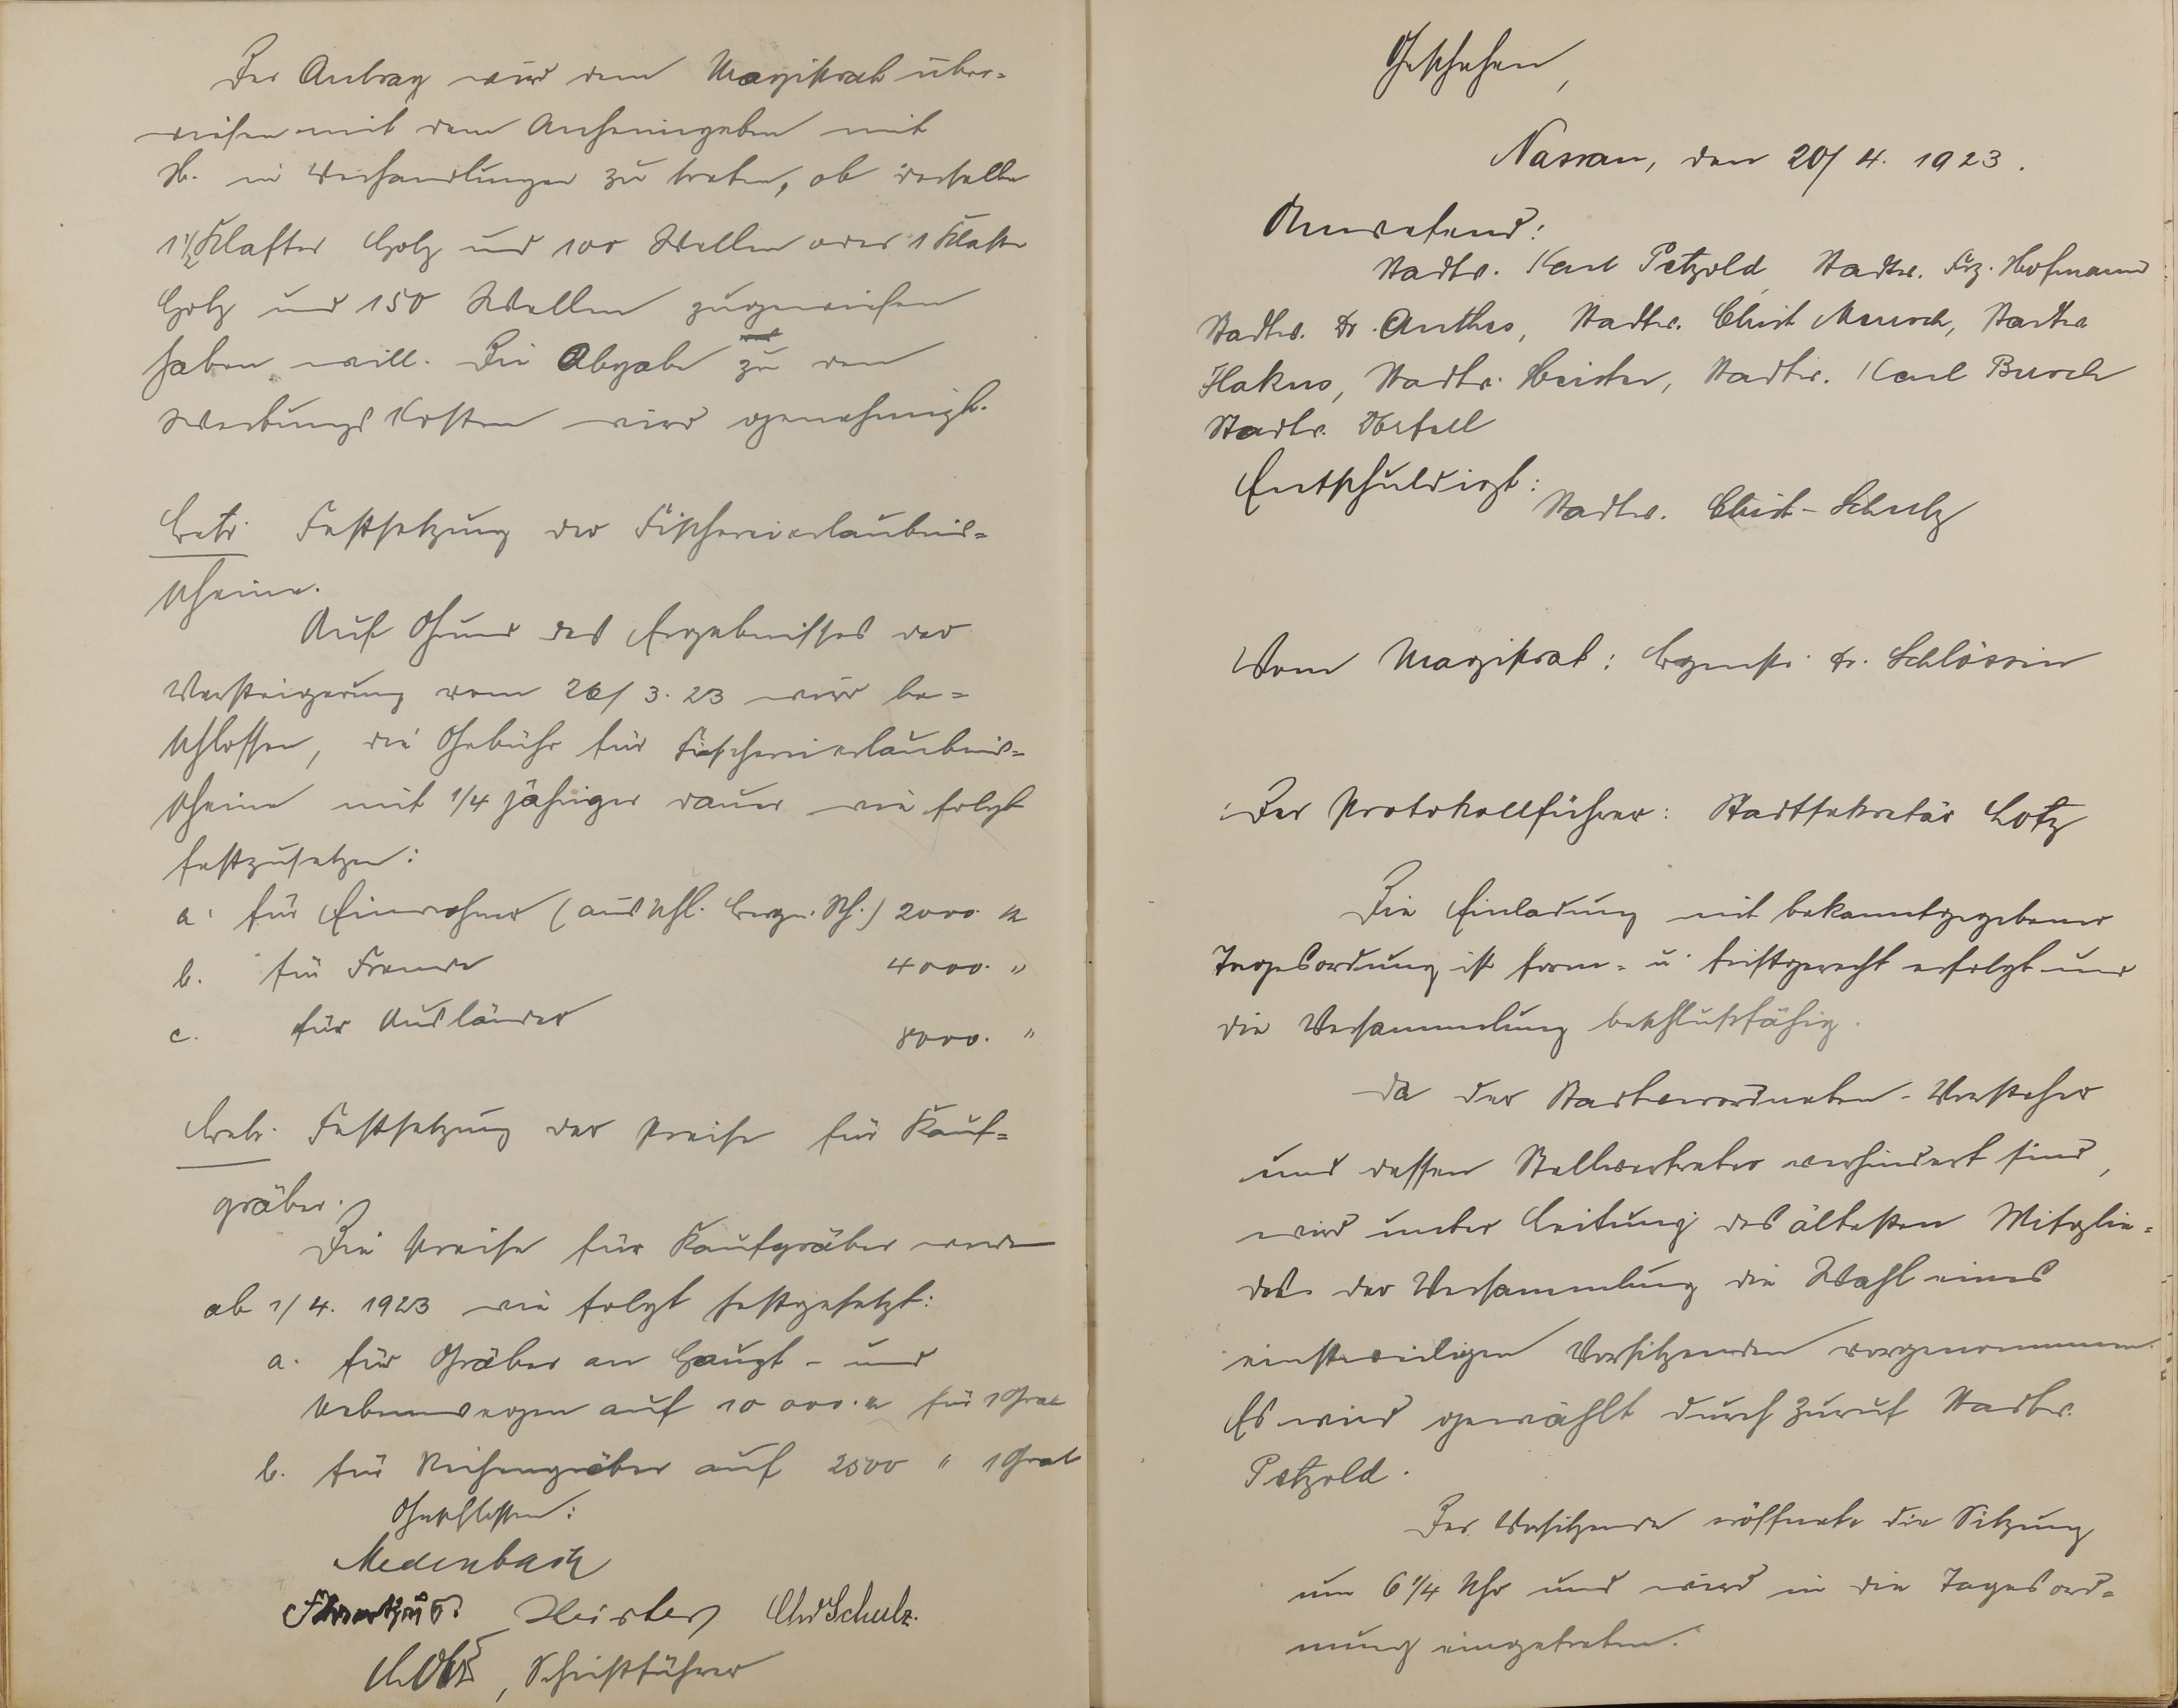 Der Antrag wird dem Magistrat über-
wiesen mit dem Anheimgeben mit
H. in Verhandlungen zu treten, ob derselbe
1 1/2 Klafter Holz und 100 Wellen oder 1 Klafter
Holz und 150 Wellen zugewiesen
haben will. Die Abgabe zu den
Werbungskosten wird genehmigt.
Betr. Festsetzung der Fischereierlaubnis-
scheine.
Auf Grund des Ergebnisses der
Versteigerung vom 26/3.23 wird be-
schlossen, die Gebühr für Fischereierlaubnis-
scheine mit 1/4 jähriger dauer wie folgt
festzusetzen:
a. für Einwohner (auschl. Bergn. Sch.) 2000 M
b. für Fremde 4000. "
c. für Ausländer 8000. "
Betr. Festsetzung der Preise für Kauf-
gräber.
Die Preise für Kaufgräber werden
ab 1/4. 1923 wie folgt festgesetzt:
a. für Gräber an Haupt- und
Nebenwegen auf 10 000. M für 1 Grab
b. für Reihengräber auf 2500 " 1 Grab
Geschlossen:
Medenbach
Heister Chr Schulz.
, Schriftführer
Geschehen,
Nassau, den 20/4. 1923.
Anwesend:
Stadtv. Karl Petzold, Stadtv. Frz. Hofmann
Stadtv. Dr. Anthes, Stadtv. Christ Meusch, Stadtv.
Hakus, Stadtv. Heister, Stadtv. Karl Busch
Stadtv. Obertell
Entschuldigt:
Stadtv. Christ - Schulz
Vom Magistrat: Bgmstr. Dr. Schlössin
Der Protokollführer: Stadtsekretär Lotz
Die Einladung mit bekanntgegebener
Tagesordnung ist form- u. fristgerecht erfolgt und
die Versammlung beschlußfähig.
Da der Stadtverordneten-Vorsteher
und dessen Stellvertreter verhindert sind,
wird unter Leitung des ältesten Mitglie-
des der Versammlung die Wahl eines
einstweiligen Vorsitzenden vorgenommen.
Es wird gewählt durch Zuruf Stadtv.
Petzold.
Der Vorsitzende eröffnete die Sitzung
um 6 1/4 Uhr und wird in die Tagesord-
nung eingetreten.